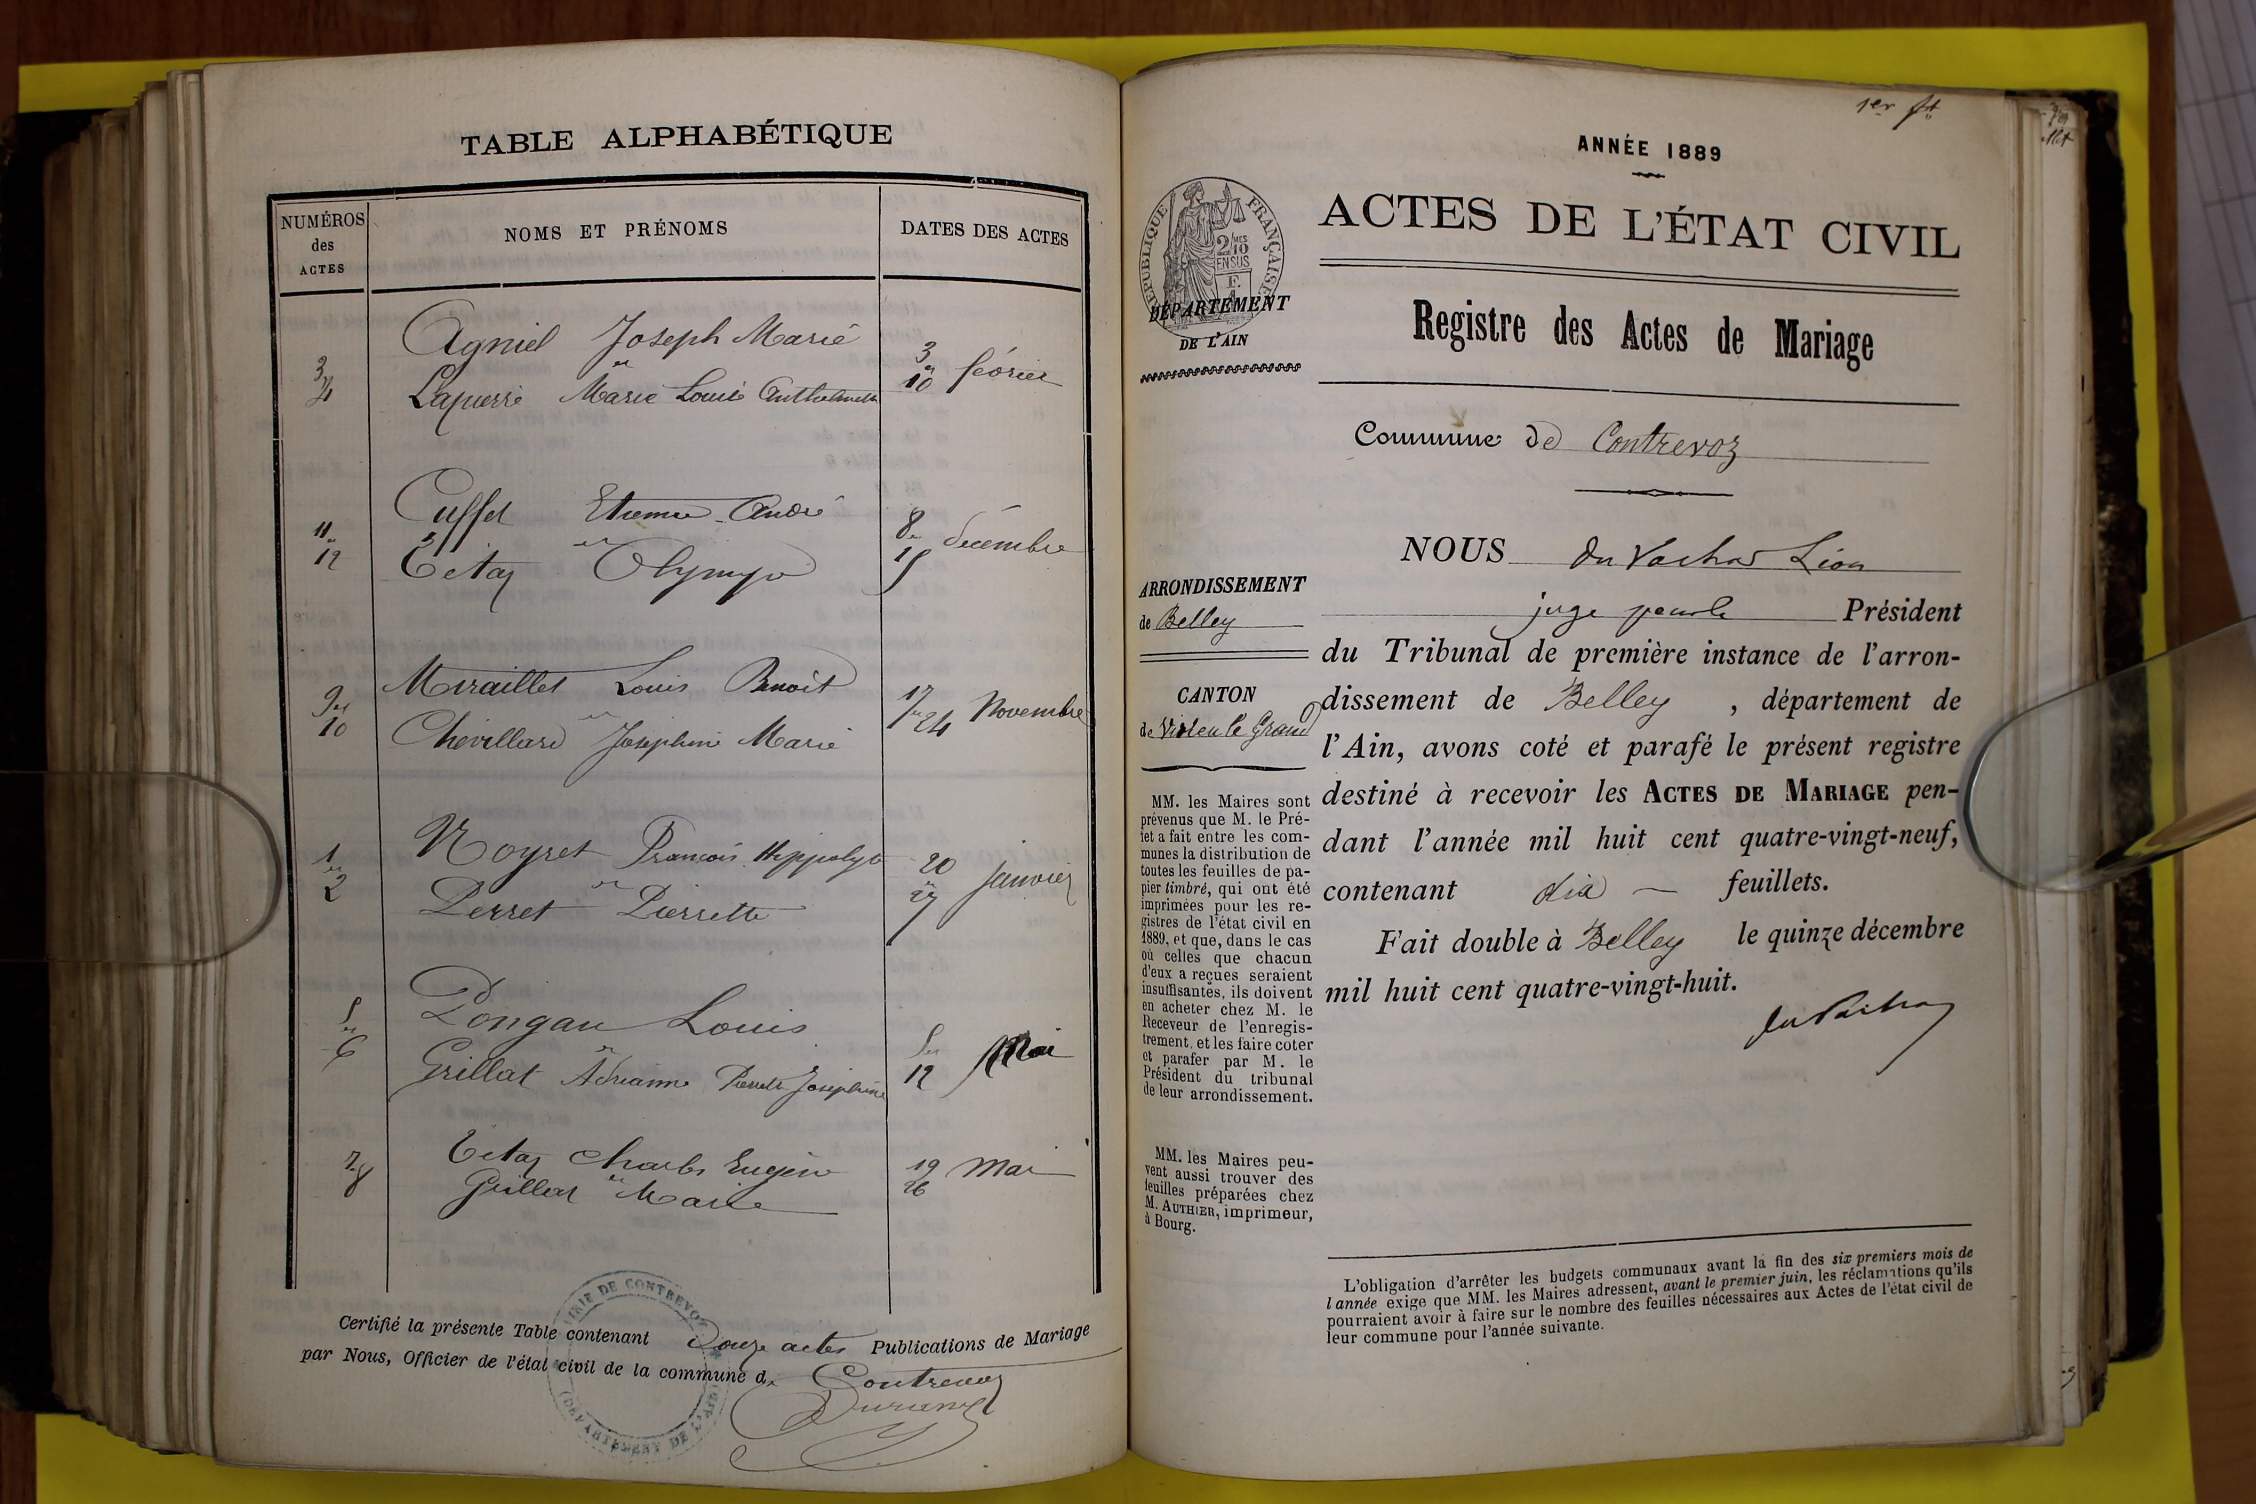 TABLE ALPHABÉTIQUE
NUMÉROS
des
ACTES
NOMS ET PRÉNOMS
DATES DES ACTES
3
4
Agniel Joseph Marie
et
Lapierre Marie Louise Anthelmette
3
et
10 février
11
et
12
Cuffet Etienne André
et
Tétaz Olympe
8
et
15 décembre
9 et
10
Miraillet Louis Benoit
et
Chevillard Joséphine Marie
17
et 24 Novembre
1
et
2
Noyret François Hippolyte
et
Perret Pierrette
20
et
27 janvier
5
et
6
Pongan Louis
et
Grillat Adrianne Pierrette Joséphine
5 et
12 Mai
7
8
Tétaz Charles Eugène
et
Grillat Marie
19
26 Mai
Certifié la présente Table contenant Douze actes Publications de Mariage
par Nous, Officier de l'état civil de la commune de Contrevoz
MAIRIE DE CONTREVOZ
(DÉPARTEMENT DE L'AIN)
1er ft
ANNÉE 1889
ACTES DE L'ÉTAT CIVIL
RÉPUBLIQUE FRANÇAISE
2/10 MES
EN SUS
DÉPARTEMENT
DE L'AIN
Registre des Actes de Mariage
Commune de Contrevoz
NOUS du Vachat Léon
juge pour le Président
du Tribunal de première instance de l'arron-
dissement de Belley, département de
l'Ain, avons coté et parafé le présent registre
destiné à recevoir les ACTES DE MARIAGE pen-
dant l'année mil huit cent quatre-vingt-neuf,
contenant dix feuillets.
Fait double à Belley le quinze décembre
mil huit cent quatre-vingt-huit.
du Vachat
ARRONDISSEMENT
de Belley
CANTON
de Virieu le Grand
MM. les Maires sont
prévenus que M. le Pré-
fet a fait entre les com-
munes la distribution de
toutes les feuilles de pa-
pier timbré, qui ont été
imprimées pour les re-
gistres de l'état civil en
1889, et que, dans le cas
où celles que chacun
d'eux a reçues seraient
insuffisantes, ils doivent
en acheter chez M. le
Receveur de l'enregis-
trement, et les faire coter
et parafer par M. le
Président du tribunal
de leur arrondissement.
MM. les Maires peu-
vent aussi trouver des
feuilles préparées chez
M. AUTHIER, imprimeur,
à Bourg.
L'obligation d'arrêter les budgets communaux avant la fin des six premiers mois de
l'année exige que MM. les Maires adressent, avant le premier juin, les réclamations qu'ils
pourraient avoir à faire sur le nombre des feuilles nécessaires aux Actes de l'état civil de
leur commune pour l'année suivante.